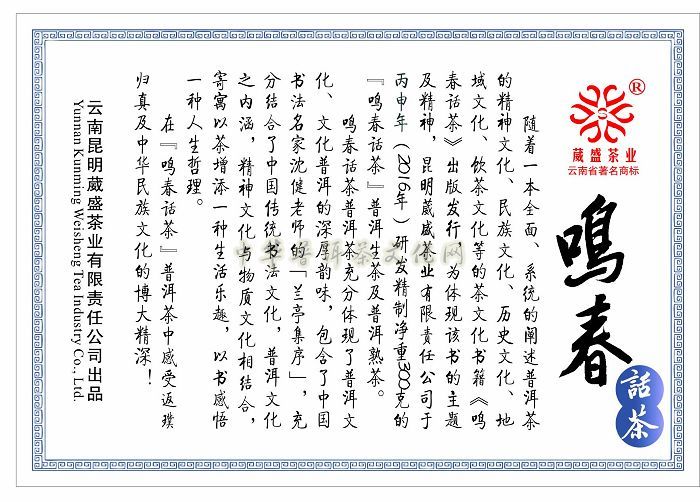 ®
葳盛茶业
云南省著名商标
鸣春
話茶
随着一本全面、系统的阐述普洱茶
的精神文化、民族文化、历史文化、地
域文化、饮茶文化等的茶文化书籍《鸣
春话茶》出版发行，为体现该书的主题
及精神，昆明葳盛茶业有限责任公司于
丙申年（2016年）研发精制净重300克的
『鸣春话茶』普洱生茶及普洱熟茶。
鸣春话茶普洱茶充分体现了普洱文
化、文化普洱的深厚韵味，包含了中国
书法名家沈健老师的「兰亭集序」，充
分结合了中国传统书法文化，普洱文化
之内涵，精神文化与物质文化相结合，
寄寓以茶增添一种生活乐趣，以书感悟
一种人生哲理。
在『鸣春话茶』普洱茶中感受返璞
归真及中华民族文化的博大精深！
云南昆明葳盛茶业有限责任公司出品
Yunnan Kunming Weisheng Tea Industry Co., Ltd.
中华普洱茶文化网